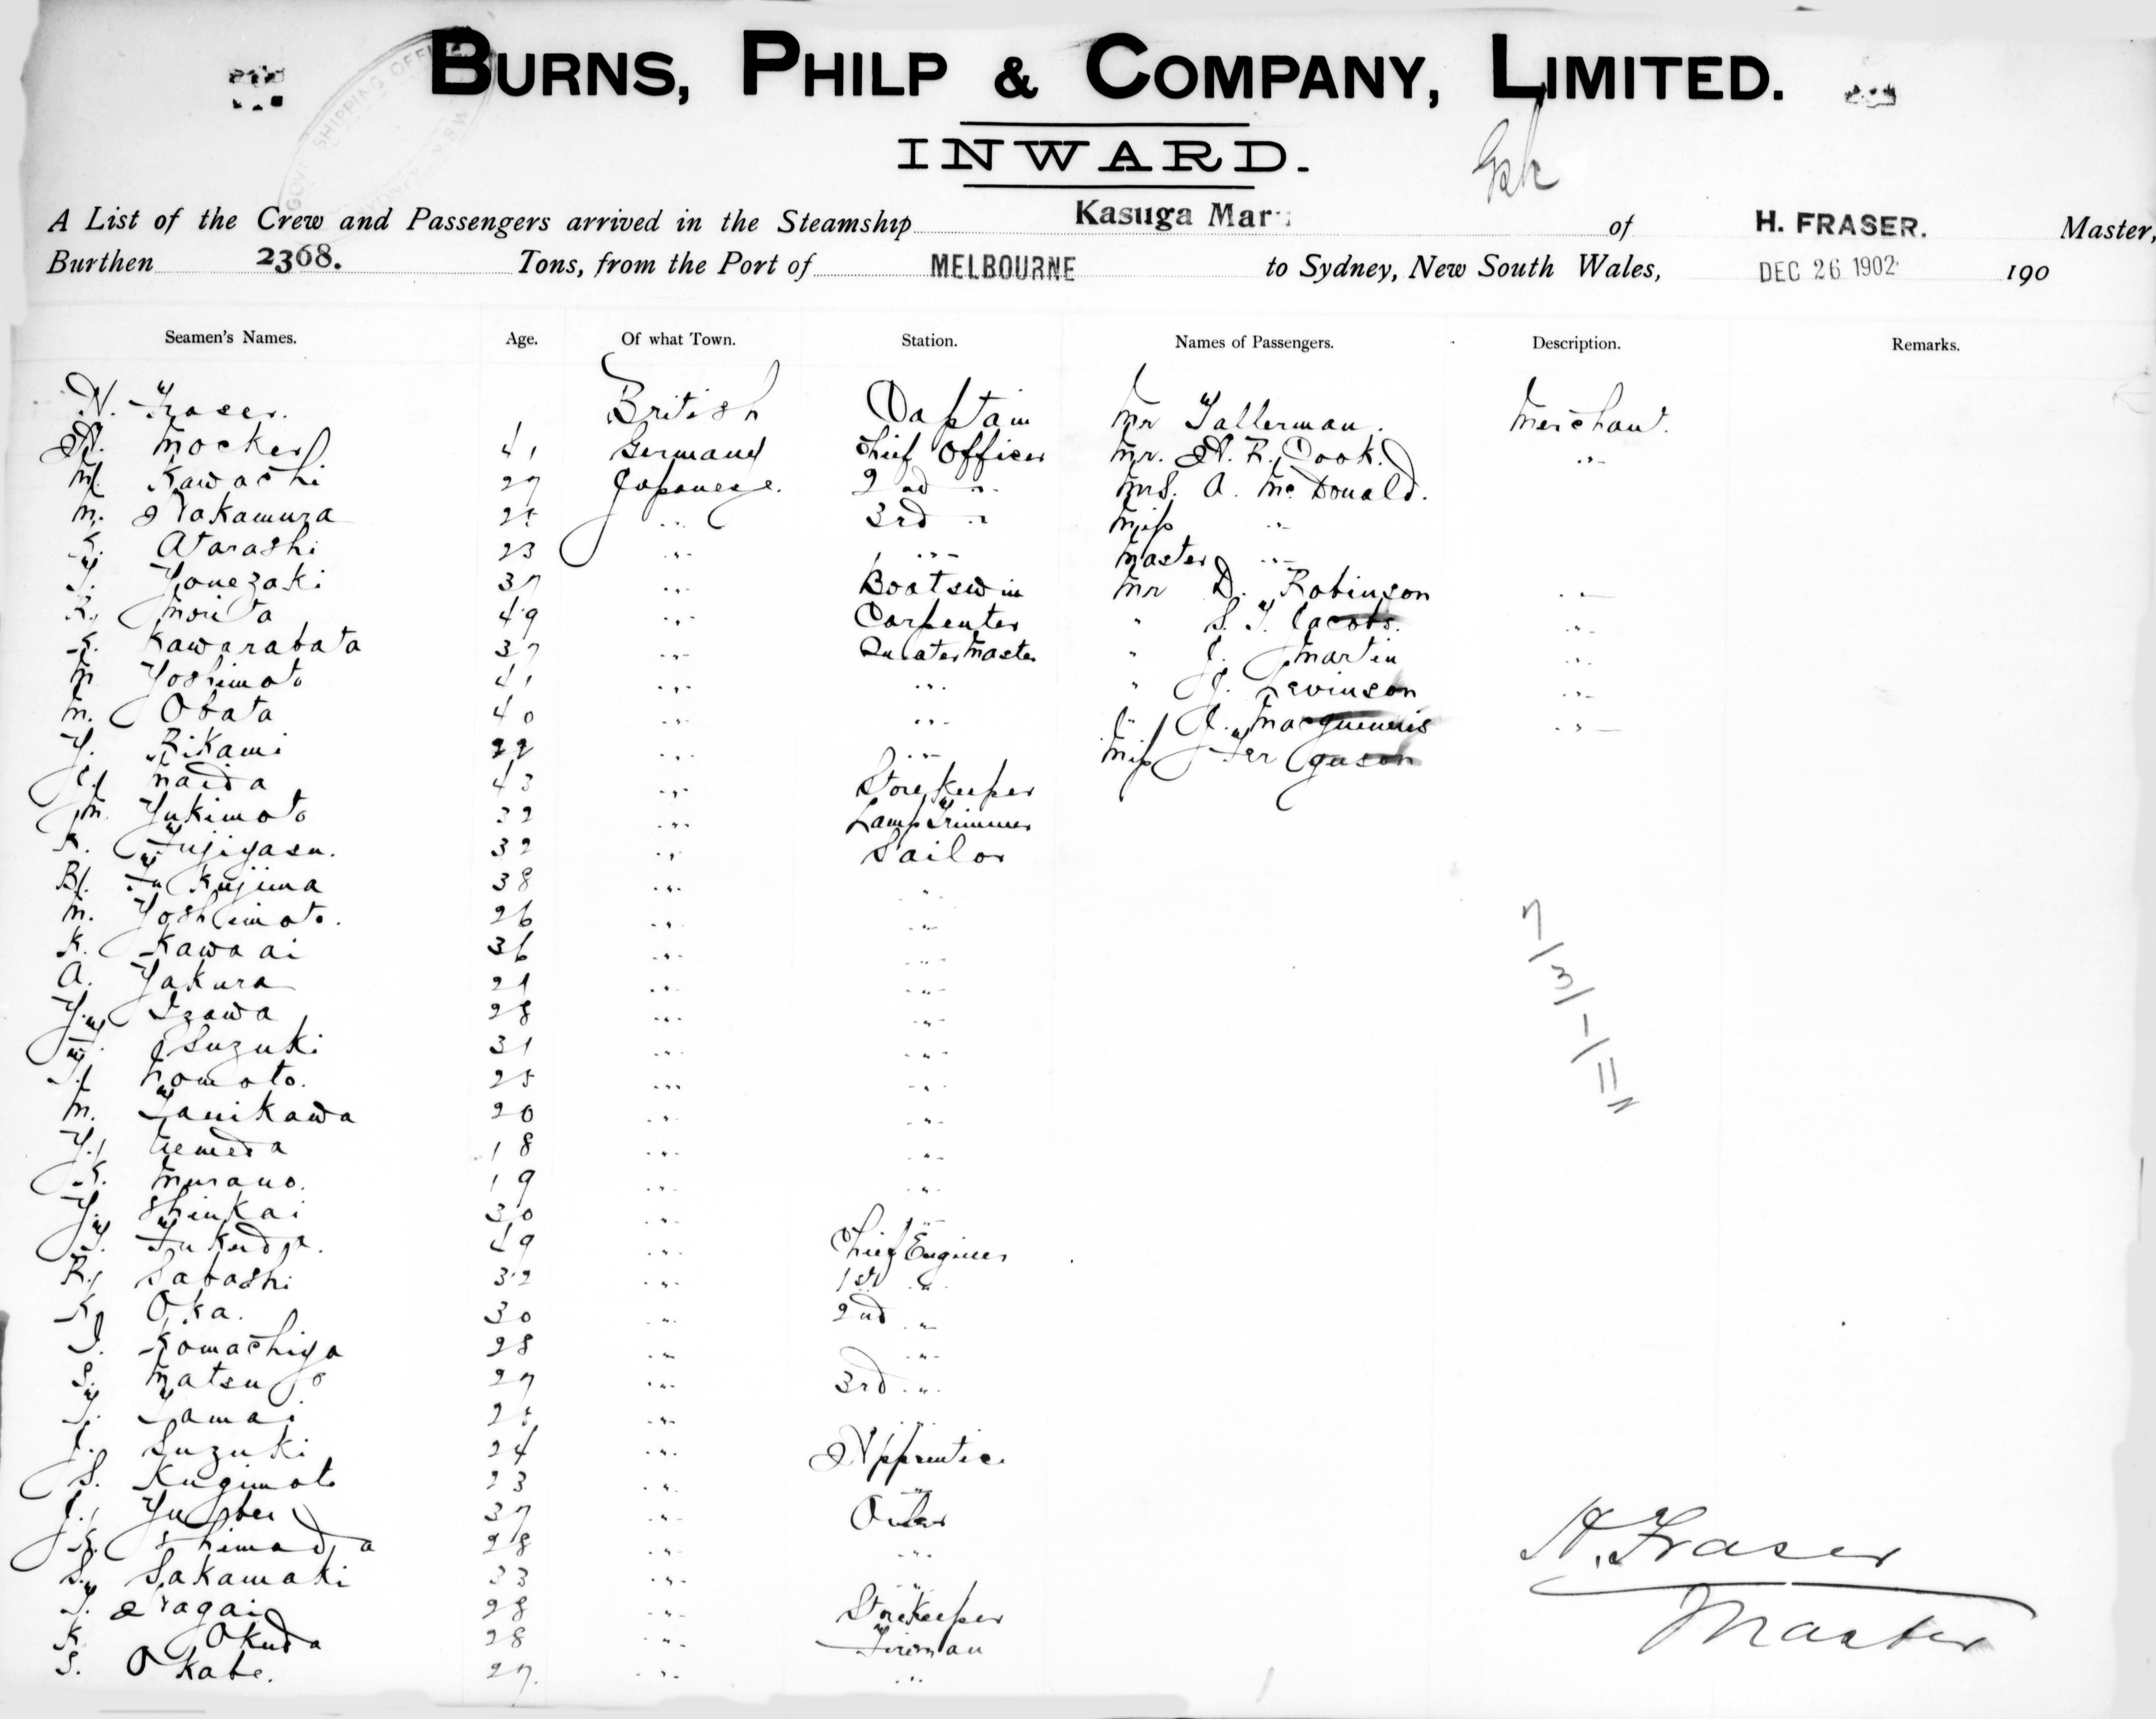 BURNS, PHILP & COMPANY, LIMITED.
GOVT SHIPPING OFFICE
INWARD.
A List of the Crew and Passengers arrived in the Steamship Kasuga Mar of H. FRASER. Master,
Burthen 2368. Tons, from the Port of MELBOURNE to Sydney, New South Wales, DEC 26 1902 190
Seamen's Names. Age. Of what Town. Station. Names of Passengers. Description. Remarks.
H. Fraser. British Captain Mr Tallerman. Merchant.
H. Mocker 41 Germany Chief Officer Mr. H. R. Cook. "
M. Kawachi 27 Japanese. 2nd " Mrs. A. McDonald.
M. Nakamura 25 " 3rd " Miss "
K. Atarashi 23 " " Master "
T. Yonezaki 37 " Boatswin Mr D. Robinson "
K. Morita 49 " Carpenter " S. T. Jacobs. "
K. Kawarabata 37 " Quatermaster " J. Martin "
M. Yoshimoto 41 " " " J. Levinson "
M. Obata 40 " " " J. "
Y. Rikami 22 " " Miss Ferguson
J. Naida 43 " Storekeeper
M. Yukimoto 32 " Lamp Trimmer
K. Fujiyasu. 32 " Sailor
B. Fukujima 38 " "
M. Yoshimoto. 26 " "
K. Kawaai 36 " "
A. Yakura 21 " "
Y. Izawa 28 " "
T. Suzuki 31 " "
T. Nomoto. 25 " "
M. Tanikawa 20 " "
Y. Uemeda 18 " "
K. Murano. 19 " "
Y. Shinkai 30 " "
T. Fukuda. 49 " Chief Engineer
R. Sabashi 32 " 1st "
K. Oka. 30 " 2nd "
I. Komachiya 28 " "
S. Matsuo 27 " 3rd "
T. Tamai 25 " "
J. Suzuki 24 " Apprentice
S. Kugimoto 23 " "
J. 37 " Oiler
K. Shimada 28 " "
S. Sakamaki 33 " "
T. Nagai 28 " Storekeeper
K. Okuda 28 " Fireman
S. Okabe. 27. " "
H. Fraser
Master